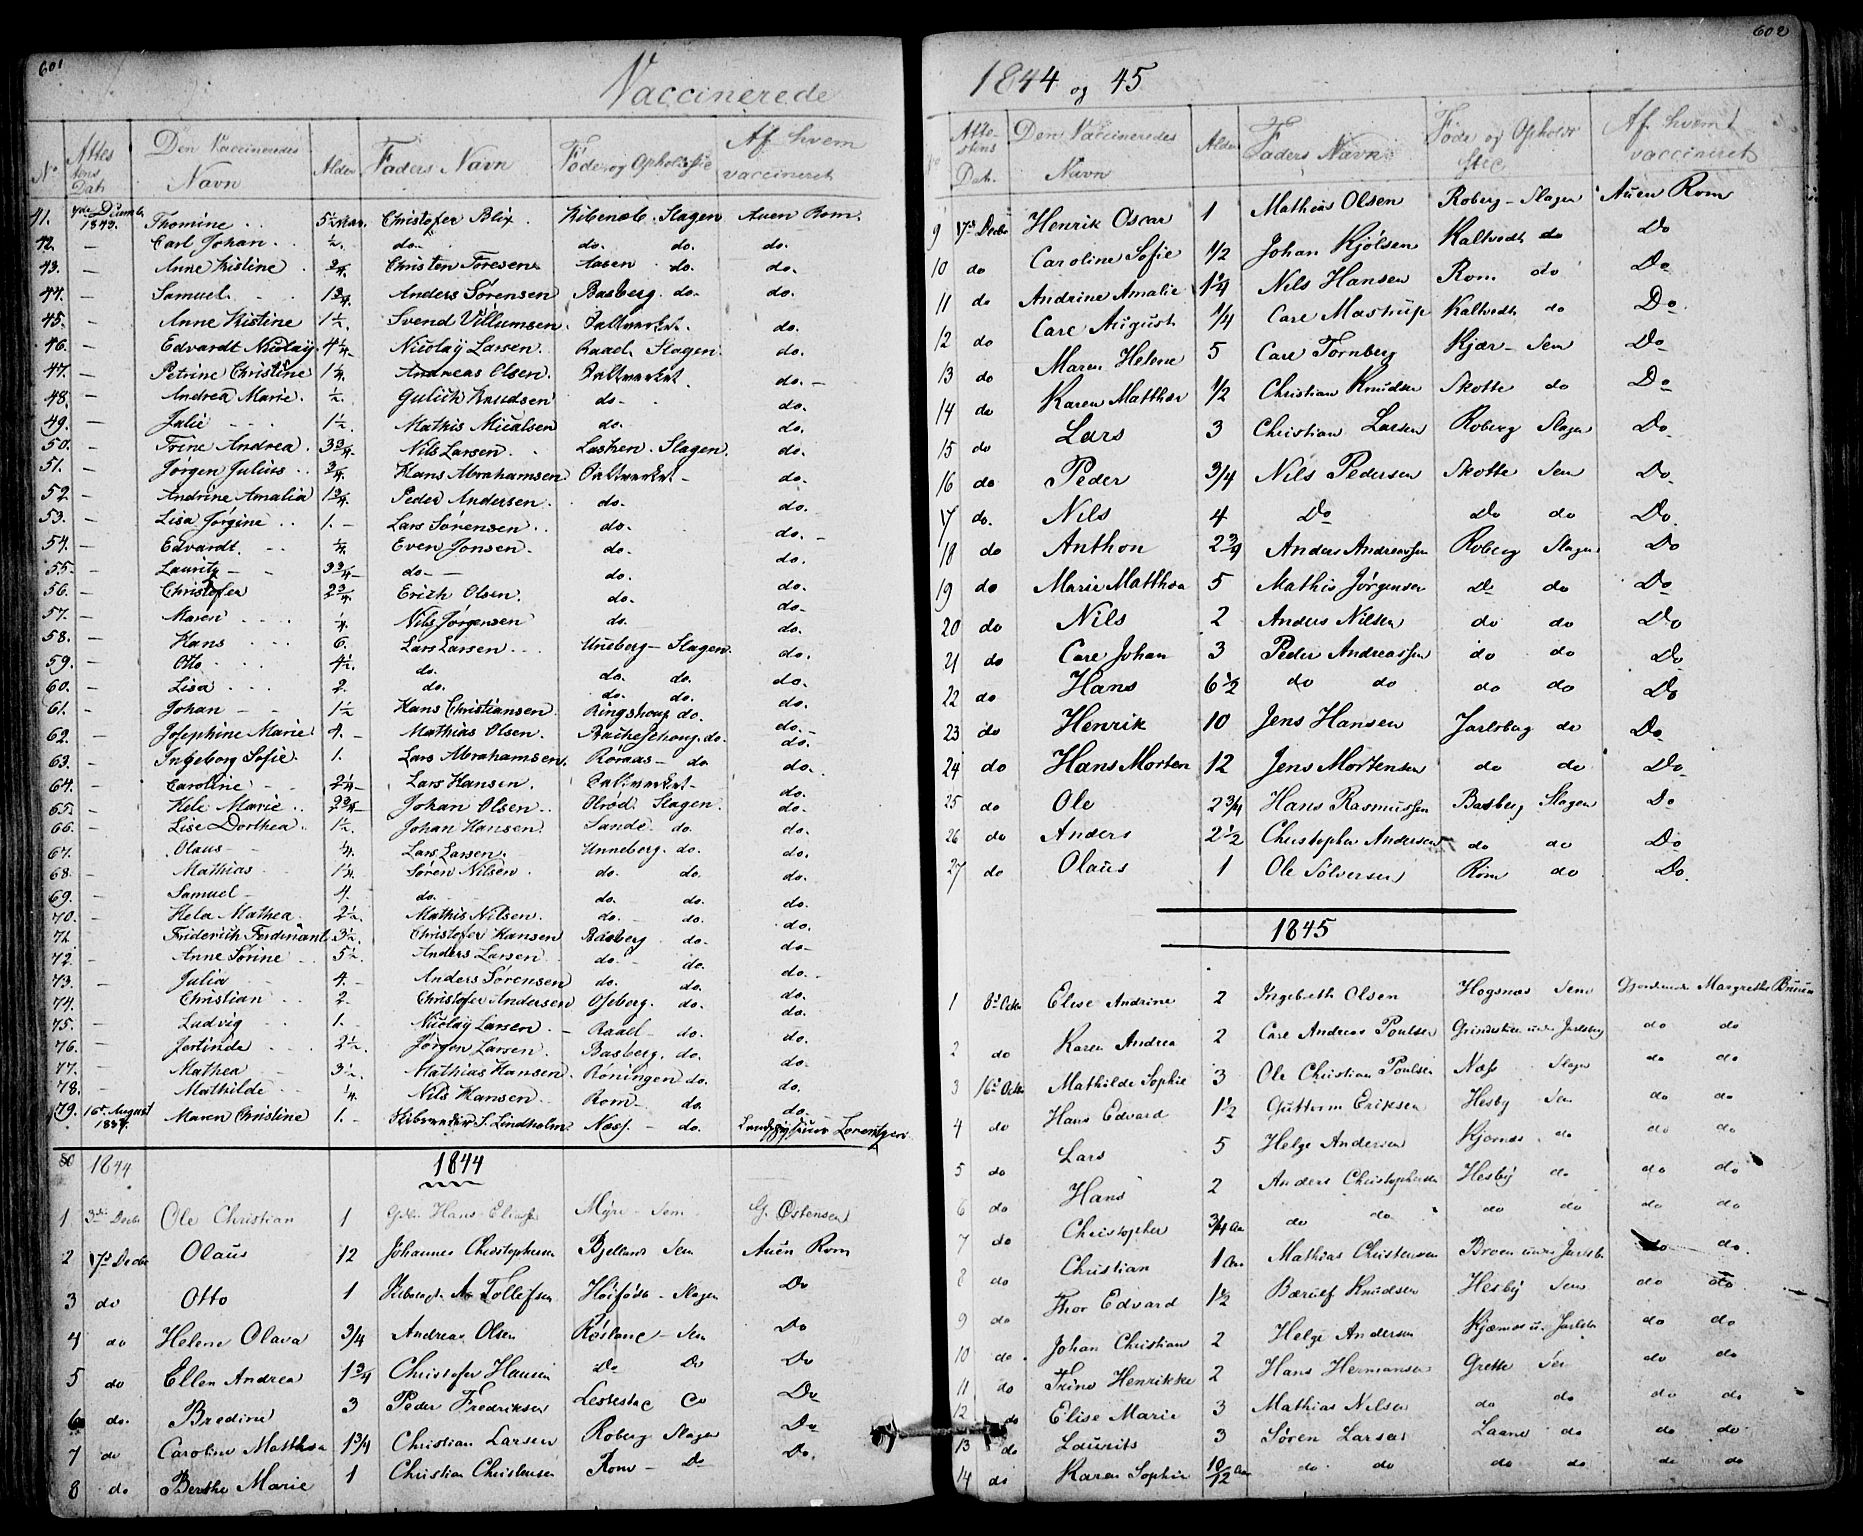 601
Vaccinerede
No Attestens Dat. Den Vaccineredes Navn Alder Faders Navn Føde og Opholdssted Af hvem vaccineret
41. 7de Decemb. 1843. Thomine 5½ Mar. Christofer Blix Slagen Auen Rom.
42. — Carl Johan ½. do. do. do. do.
43. — Anne Kistine ¾. Christen Toresen Aasen do. do.
44. — Samuel 1¾. Anders Sørensen Basberg. do. do.
45. — Anne Kistine 1½. Svend Villumsen Saltværket. do.
46. — Edvardt Nicolay 4¼. Nicolay Larsen. Raael Slagen. do.
47. — Petrine Christine 1¼. Andreas Olsen. Saltværket. do.
48. — Andrea Marie. ½. Gulich Knudsen do. do.
49. — Julie 1½. Mathis Micalsen do. do.
50. — Trine Andrea. 3¾. Nils Larsen. Slagen. do.
51. — Jørgen Julius ¾. Hans Abrahamsen Saltværket do.
52. — Andrine Amalia 1¾. Peder Andersen do. do.
53. — Lisa Jørgine 1. Lars Sørensen do. do.
54. — Edvardt. ¼. Even Jonsen. do. do.
55. — Lauritz 3¾. do. do. do.
56. — Christofer 2¾. Erich Olsen. do. do.
57. — Maren ¼. Nils Jørgensen do. do.
58. — Hans 6. Lars Larsen Uneberg Slagen. do.
59. — Otto 4½. do. do. do. do.
60. — Lisa 2. do. do. do. do.
61. — Johan 1½ Hans Christiansen Ringshoug do. do.
62. — Josephine Marie 4. Mathias Olsen. do. do.
63. — Ingeborg Sofie. 1. Lars Abrahamsen. Røraas do do.
64. — Caroline 2¼ Lars Hansen Saltværket do.
65. — Hele Marie 2¾ Johan Olsen Olrød. Slagen. do.
66. — Lise Dorthea. 1½. Johan Hansen. Sande. do. do.
67. — Olaus ¼. Lars Larsen. Unneberg. do. do.
68. — Mathias 1¼. Søren Nilsen. do. do. do.
69. — Samuel 4. do. do. do. do.
70. — Hela Mathea. 2½. Mathis Nilsen. do. do. do.
71. — Friderich Ferdinant 3½. Christofer Hansen Basberg do. do.
72. — Anne Sørine 5½. Anders Larsen. do. do. do.
73. — Julia 4. Anders Sørensen do. do. do.
74. — Christian 2. Christofer Andersen do. do.
75. — Ludvig 1. Nicolay Larsen. Raael do. do.
76. — 2½. Jørgen Larsen. Basberg. do. do.
77. — Mathea 3½. Mathias Hansen. Røningen do. do.
78. — Mathilde ¼. Nils Hansen. Rom do. do.
79. 16de August 1834. Maren Christine 1. S. Lindholm Næss. do. Lorentzen
80 1844 1844
1 3die Decbr Ole Christian 1 Hans Eliasen Myre Sem G. Østensen
2 17de Decbr Olaus 12 Johannes Christophersen Bjelland Sem Auen Rom
3 do Otto 1 A Tollefsen Slagen Do
4 do Helene Olava 3/4 Andreas Olsen Sem Do
5 do Ellen Andrea 1¾ Christofer Hansen Do Do Do
6 do. Bredine 3 Peder Fredriksen Do
7 do Caroline Matthea 1¾ Christian Larsen Roberg Slagen Do
8 do Berthe Marie 1 Christian Christensen Rom Do Do.
602
1844 og 45
No Attestens Dat. Den Vaccineredes Navn Alder Faders Navn Føde og Opholds Sted Af hvem vaccineret
9 17de Decbr Henrik Oscar 1 Mathias Olsen Roberg Slagen Auen Rom
10 do Caroline Sofie 1/2 Johan Kjølsen Kaltvedt do Do
11 do Andrine Amalie 1¼ Nils Hansen Rom do Do
12 do Carl August 1/4 Carl Mastrup Kaltvedt do Do.
13 do Maren Helene 5 Carl Tornberg Kjær Sem Do
14 do Karen Matthea 1/2 Christian Knudsen Skotte do Do
15 do Lars 3 Christian Larsen Roberg Slagen Do
16 do Peder 3/4 Nils Pedersen Skotte Sem Do.
17 do. Nils 4 Do Do do Do.
18 do Anthon 2¾ Anders Andreassen Roberg Slagen Do
19 do Marie Matthea 5 Mathis Jørgensen Do do Do
20 do Nils 2 Anders Nilsen do do Do
21 do Carl Johan 3 Peder Andreassen do do Do
22 do Hans 6½ do do do do Do
23 do Henrik 10 Jens Hansen Jarlsberg do Do
24 do Hans Morten 12 Jens Mortensen do do Do
25 do Ole 2¾ Hans Rasmussen Basberg Slagen Do
26 do Anders 2½ Christopher Andersen do do Do
27 do Olaus 1 Ole Sølversen Rom do Do.
1845
1 8de Octbr Elise Andrine 2 Ingebreth Olsen Hogsnæs Sem Margrethe Bruun
2 do Karen Andrea 2 Carl Andreas Poulsen under Jarlsberg do do
3 16de Octbr Mathilde Sophie 3 Ole Christian Poulsen Næss Slagen do do
4 do Hans Edvard 1½ Guttorm Eriksen Hesby Sem do do
5 do Lars 5 Helge Andersen Kjærnæs do do do
6 do Hans 2 Anders Christophersen Hesby do do do
7 do Christopher 3/4 Aar do do do do do do
8 do Christian 1 Aar Mathias Christensen Broen under Jarlsb. do do.
9 do Thor Edvard 1½ Knudsen Hesby Sem do do
10 do. Johan Christian 2 Helge Andersen Kjærnæs u. Jarlsb. do do
11 do Trine Henrikke 2 Hans Hermansen Grette Sem do do
12 do Elise Marie 3 Mathias Nilsen do do do do
13 do Laurits 3 Søren Larsen do do do
14 do Karen Sophie 10/12 Aar do do do do do do